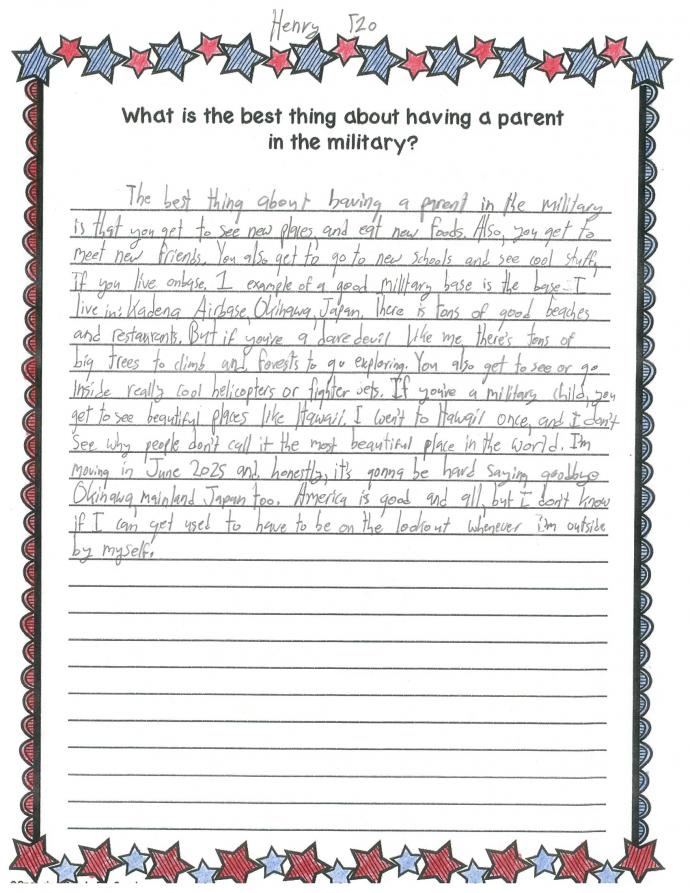 Henry
What is the best thing about having a parent
in the military?
The best thing about having a parent in the military
is that you get to see new places, and eat new foods. Also, you get to
meet new friends. You also get to go to new schools and see cool stuff,
If you live onbase. 1 example of a good military base is the base I
live in: Kadena Airbase, Okinawa, Japan. There is tons of good beaches
and restaurants. But if you're a daredevil like me, there's tons of
big trees to climb and forests to go exploring. You also get to see or go
inside really cool helicopters or fighter jets. If you're a military child, you
get to see beautiful places like Hawaii. I went to Hawaii once, and I don't
see why people don't call it the most beautiful place in the world. I'm
moving in June 2025 and honestly, it's gonna be hard saying goodbye
Okinawa, mainland Japan too. America is good and all, but I don't know
if I can get used to have to be on the lookout whenever i'm outside
by myself.